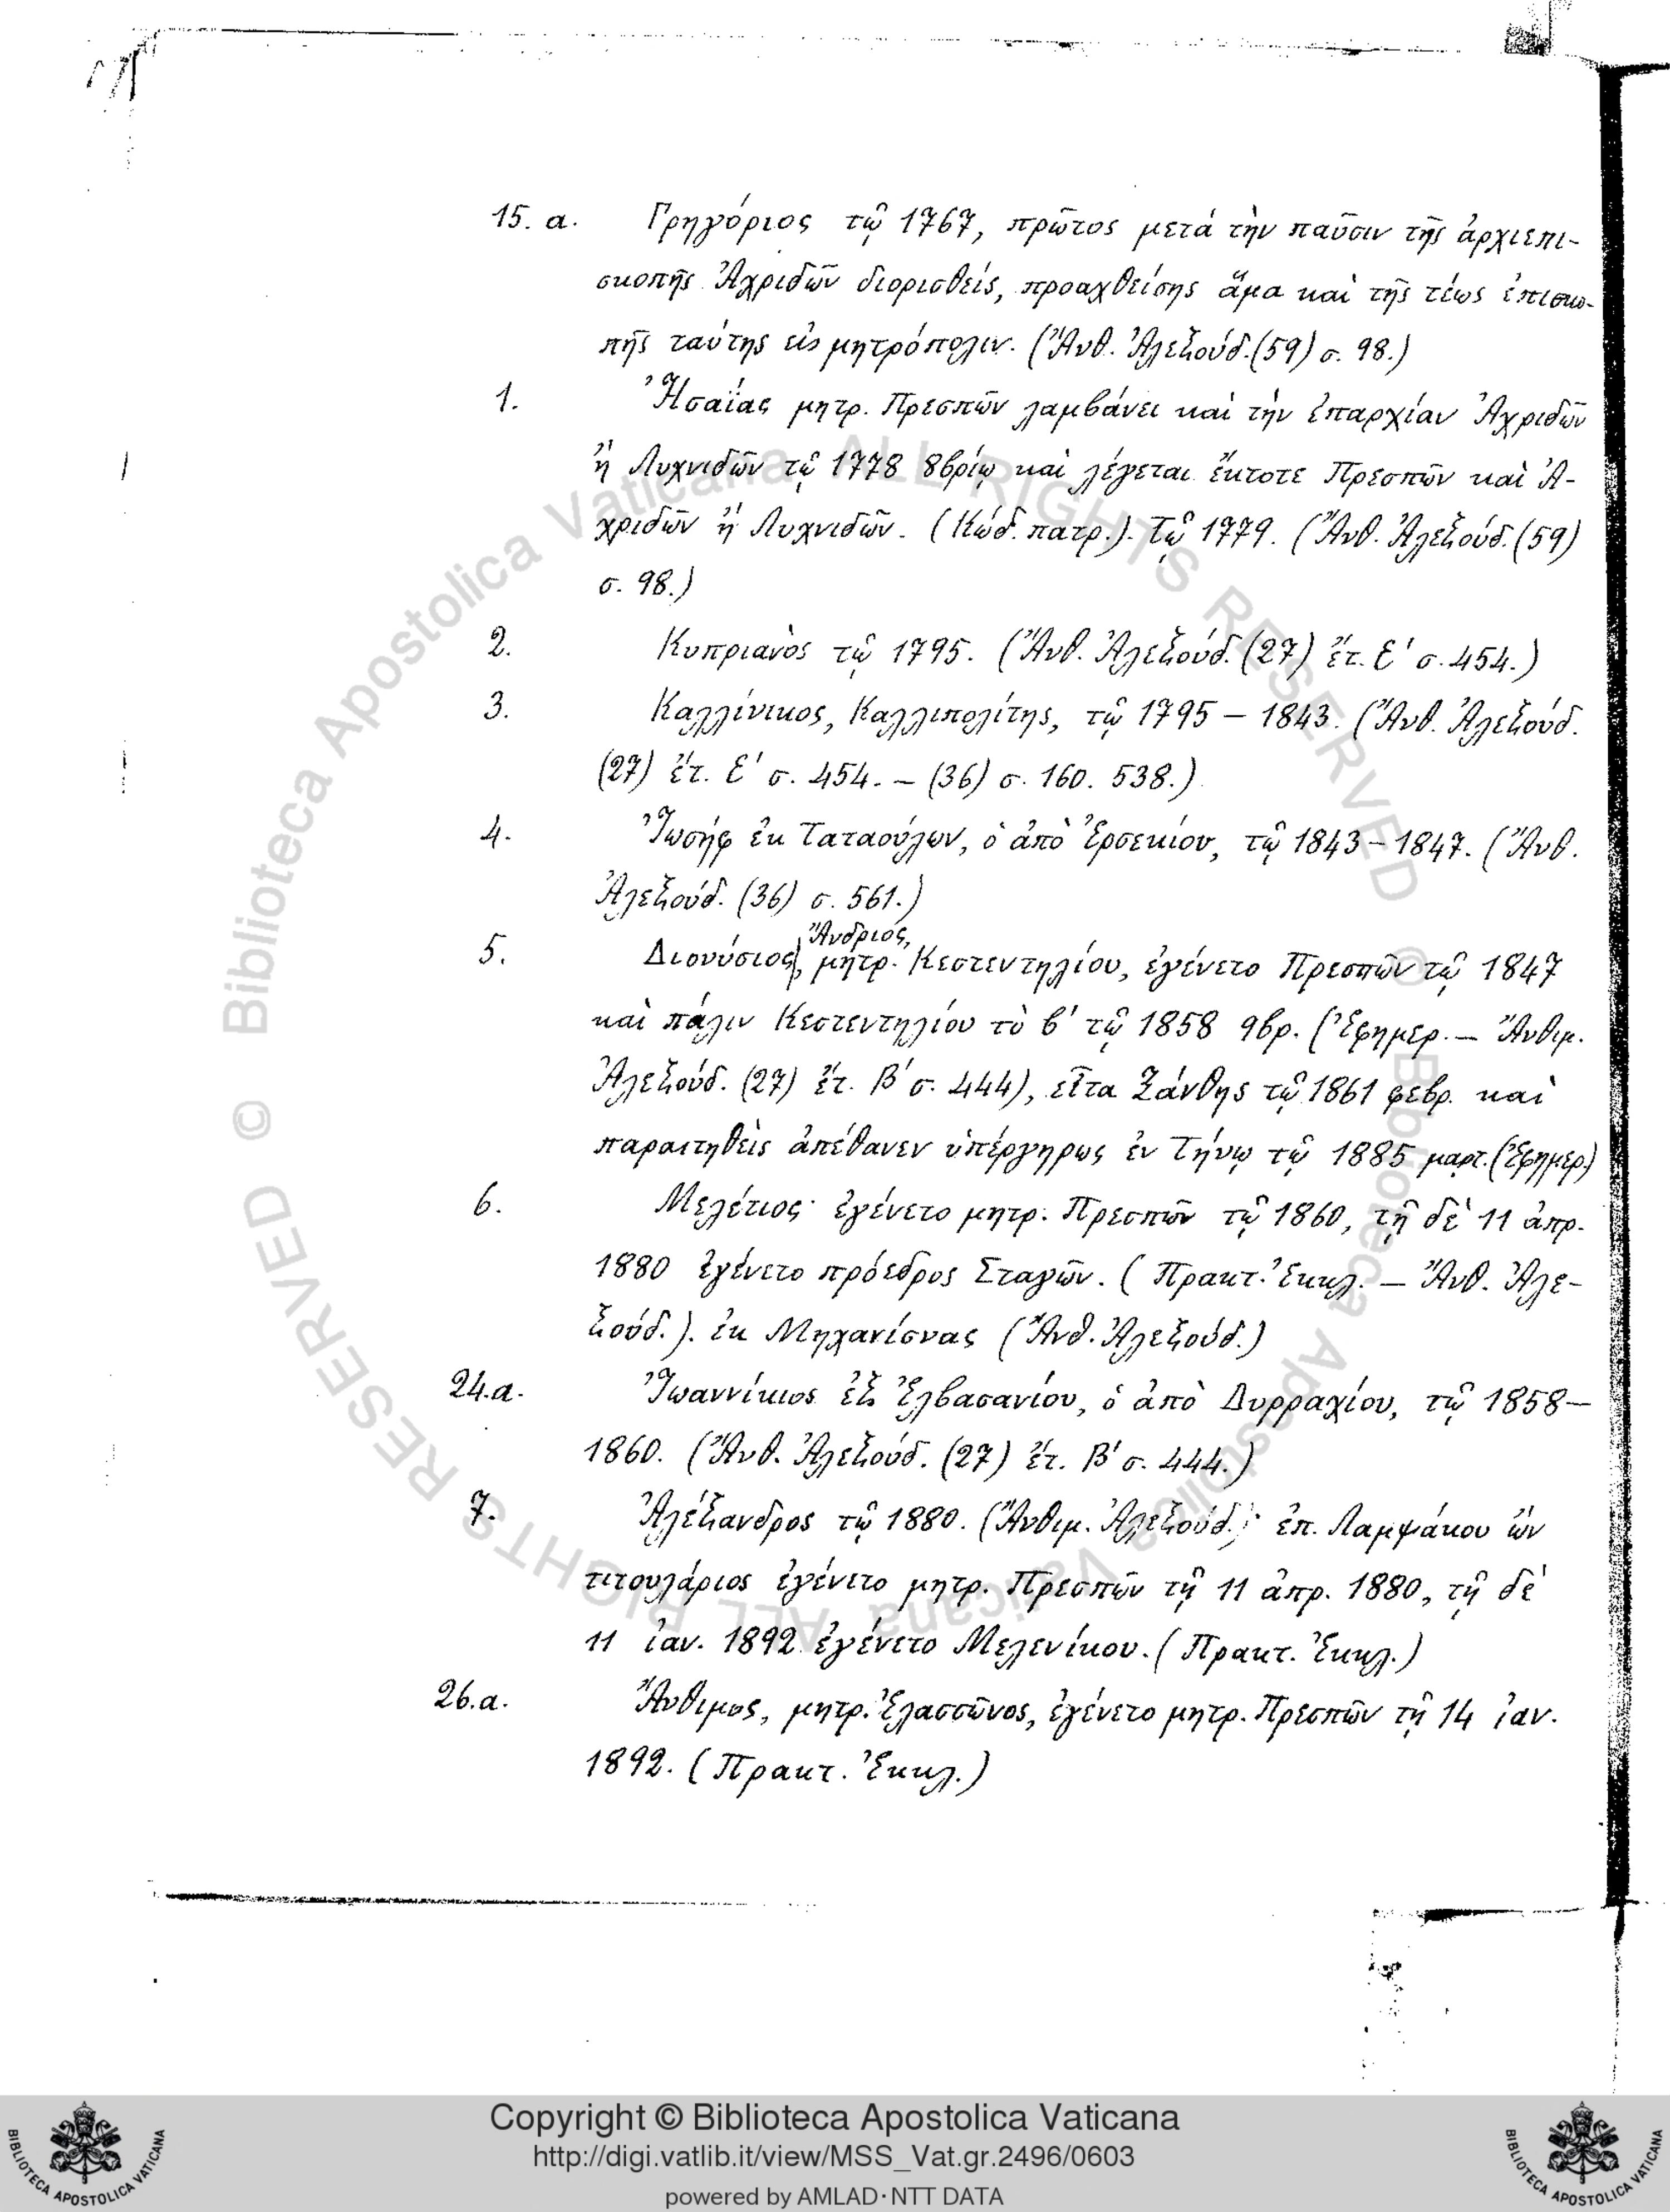 15. α. Γρηγόριος τῷ 1767, πρῶτος μετά τὴν παῦσιν τῆς ἀρχιεπι-
σκοπῆς Ἀχριδῶν διορισθείς, προαχθείσης ἅμα καὶ τῆς τέως ἐπισκο-
πῆς ταύτης εἰς μητρόπολιν. (Ἄνθ. Ἀλεξούδ. (59) σ. 98.)
1. Ἡσαΐας μητρ. Πρεσπῶν λαμβάνει καὶ τὴν ἐπαρχίαν Ἀχριδῶν
ἢ Λυχνιδῶν τῷ 1778 8βρίῳ καὶ λέγεται ἔκτοτε Πρεσπῶν καὶ Ἀ-
χριδῶν ἢ Λυχνιδῶν. (Κώδ. πατρ.). Τῷ 1779. (Ἄνθ. Ἀλεξούδ. (59)
σ. 98.)
2. Κυπριανὸς τῷ 1795. (Ἄνθ. Ἀλεξούδ. (27) ἔτ. Ε' σ. 454.)
3. Καλλίνικος, Καλλιπολίτης, τῷ 1795 – 1843. (Ἄνθ. Ἀλεξούδ.
(27) ἔτ. Ε' σ. 454. – (36) σ. 160. 538.)
4. Ἰωσήφ ἐκ Ταταούλων, ὁ ἀπὸ Ἐρσεκίου, τῷ 1843 – 1847. (Ἄνθ.
Ἀλεξούδ. (36) σ. 561.)
Ἄνδριος,
5. Διονύσιος, μητρ. Κεστεντηλίου, ἐγένετο Πρεσπῶν τῷ 1847
καὶ πάλιν Κεστεντηλίου τὸ β' τῷ 1858 9βρ. (Ἐφημερ. – Ἄνθιμ.
Ἀλεξούδ. (27) ἔτ. Β' σ. 444), εἶτα Ξάνθης τῷ 1861 φεβρ. καὶ
παραιτηθεὶς ἀπέθανεν ὑπέργηρως ἐν Τήνῳ τῷ 1885 μαρτ. (Ἐφημερ.)
6. Μελέτιος· ἐγένετο μητρ. Πρεσπῶν τῷ 1860, τῇ δὲ 11 ἀπρ.
1880 ἐγένετο πρόεδρος Σταγῶν. (Πρακτ. Ἐκκλ. – Ἄνθ. Ἀλε-
ξούδ.). ἐκ Μηχανίσνας (Ἄνθ. Ἀλεξούδ.)
24.α. Ἰωαννίκιος ἐξ Ἐλβασανίου, ὁ ἀπὸ Δυρραχίου, τῷ 1858 –
1860. (Ἄνθ. Ἀλεξούδ. (27) ἔτ. Β' σ. 444.)
7. Ἀλέξανδρος τῷ 1880. (Ἄνθιμ. Ἀλεξούδ.)· ἐπ. Λαμψάκου ὢν
τιτουλάριος ἐγένετο μητρ. Πρεσπῶν τῇ 11 ἀπρ. 1880, τῇ δὲ
11 ἰαν. 1892 ἐγένετο Μελενίκου. (Πρακτ. Ἐκκλ.)
26.α. Ἄνθιμος, μητρ. Ἐλασσῶνος, ἐγένετο μητρ. Πρεσπῶν τῇ 14 ἰαν.
1892. (Πρακτ. Ἐκκλ.)
© Biblioteca Apostolica Vaticana ALL RIGHTS RESERVED © Biblioteca Apostolica Vaticana ALL RIGHTS RESERVED
Copyright © Biblioteca Apostolica Vaticana
http://digi.vatlib.it/view/MSS_Vat.gr.2496/0603
powered by AMLAD·NTT DATA
BIBLIOTECA APOSTOLICA VATICANA
BIBLIOTECA APOSTOLICA VATICANA